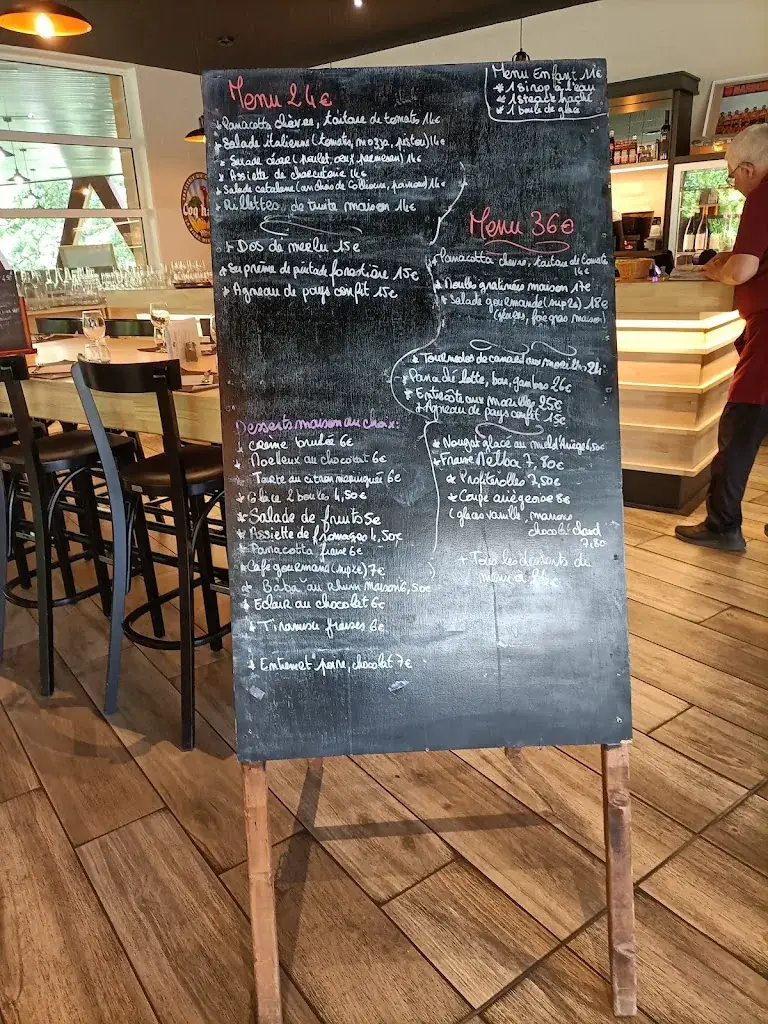 Menu 24€
* Panacotta chèvre, tartare de tomates 14€
* Salade italienne (tomates, mozza, pistou) 14€
* Salade césar (poulet, oeuf, parmesan) 14€
* Assiette de charcuterie 14€
* Salade catalane (anchois de Collioure, poivrons) 14€
* Rillettes de truite maison 14€
* Dos de merlu 15€
* Suprême de pintade forestière 15€
* Agneau de pays confit 15€
Desserts maison au choix:
* Crème brulée 6€
* Moelleux au chocolat 6€
* Tarte au citron meringuée 6€
* Glace 2 boules 4,50€
* Salade de fruits 5€
* Assiette de fromages 4,50€
* Panacotta fraise 6€
* Café gourmand (sup 2€) 7€
* Baba au rhum maison 6,50€
* Eclair au chocolat 6€
* Tiramisu fraises 6€
* Entremet poire, chocolat 7€
Menu Enfant 11€
* 1 sirop à l'eau
* 1 steack haché
* 1 boule de glace
Menu 36€
* Panacotta chèvre, tartare de tomate
14€
* Moules gratinées maison 17€
* Salade gourmande (sup 2€) 18€
(gésiers, foie gras maison)
* Tournedos de canard aux morilles 24
* Parillade lotte, bar, gambas 26€
* Entrecôte aux morilles 25€
* Agneau de pays confit 15€
* Nougat glacé au miel d'Ariège 6,50€
* Fraise Melba 7,80€
* Profiterolles 7,50€
* Coupe ariégeoise 8€
(glaces vanille, marrons
chocolat chaud
7,80
+ Tous les desserts du
menu à 24€
Coq